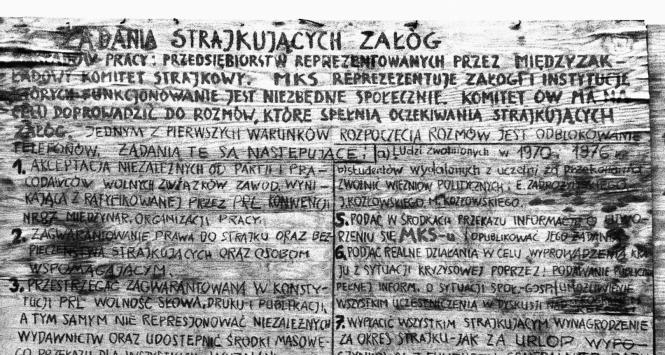 ŻĄDANIA STRAJKUJĄCYCH ZAŁÓG
PRACY I PRZEDSIĘBIORSTW REPREZENTOWANYCH PRZEZ MIĘDZYZAK-
ŁADOWY KOMITET STRAJKOWY. MKS REPREZENTUJE ZAŁOGI I INSTYTUCJE
KTÓRYCH FUNKCJONOWANIE JEST NIEZBĘDNE SPOŁECZNIE. KOMITET ÓW MA NA
CELU DOPROWADZIĆ DO ROZMÓW, KTÓRE SPEŁNIĄ OCZEKIWANIA STRAJKUJĄCYCH
ZAŁÓG. JEDNYM Z PIERWSZYCH WARUNKÓW ROZPOCZĘCIA ROZMÓW JEST ODBLOKOWANIE
TELEFONÓW. ŻĄDANIA TE SĄ NASTĘPUJĄCE:
1. AKCEPTACJA NIEZALEŻNYCH OD PARTII I PRA-
CODAWCÓW WOLNYCH ZWIĄZKÓW ZAWOD. WYNI-
KAJĄCA Z RATYFIKOWANEJ PRZEZ PRL KONWENCJI
NR 87 MIĘDZYNAR. ORGANIZACJI PRACY.
2. ZAGWARANTOWANIE PRAWA DO STRAJKU ORAZ BEZ-
PIECZEŃSTWA STRAJKUJĄCYCH ORAZ OSOBOM
WSPOMAGAJĄCYM.
3. PRZESTRZEGAĆ ZAGWARANTOWANĄ W KONSTY-
TUCJI PRL WOLNOŚĆ SŁOWA, DRUKU I PUBLIKACJI,
A TYM SAMYM NIE REPRESJONOWAĆ NIEZALEŻNYCH
WYDAWNICTW ORAZ UDOSTĘPNIĆ ŚRODKI MASOWE-
GO PRZEKAZU DLA
a) Ludzi zwolnionych w 1970 1976
b) studentów wydalonych z uczelni za przekonania
ZWOLNIĆ WIĘŹNIÓW POLITYCZNYCH: E. ZADROŻYŃSKIEGO
J. KOZŁOWSKIEGO M. KOZŁOWSKIEGO.
5. PODAĆ W ŚRODKACH PRZEKAZU INFORMACJE O UTWO-
RZENIU SIĘ MKS-u I OPUBLIKOWAĆ JEGO ŻĄDANIA
6. PODJĄĆ REALNE DZIAŁANIA W CELU WYPROWADZENIA KRA-
JU Z SYTUACJI KRYZYSOWEJ POPRZEZ: PODAWANIE PUBLICZN
PEŁNEJ INFORM. O SYTUACJI SPOŁ-GOSP. UMOŻLIWIENIE
WSZYSTKIM UCZESTNICZENIA W DYSKUSJI NAD
7. WYPŁACIĆ WSZYSTKIM STRAJKUJĄCYM WYNAGRODZENIE
ZA OKRES STRAJKU-JAK ZA URLOP WYPO-